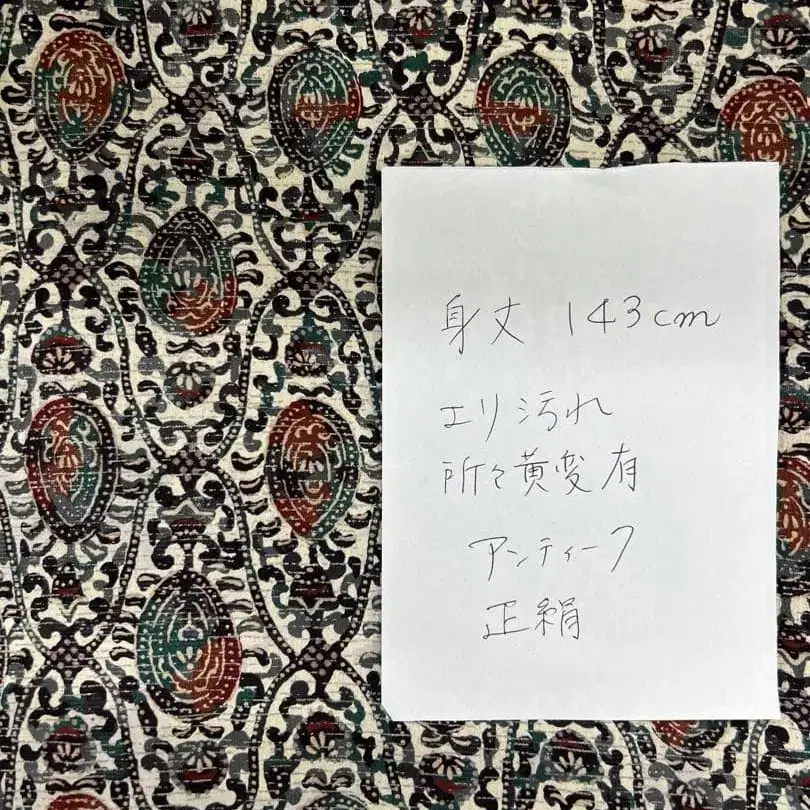 身丈 143cm
エリ汚れ
所々黄変有
アンティーク
正絹